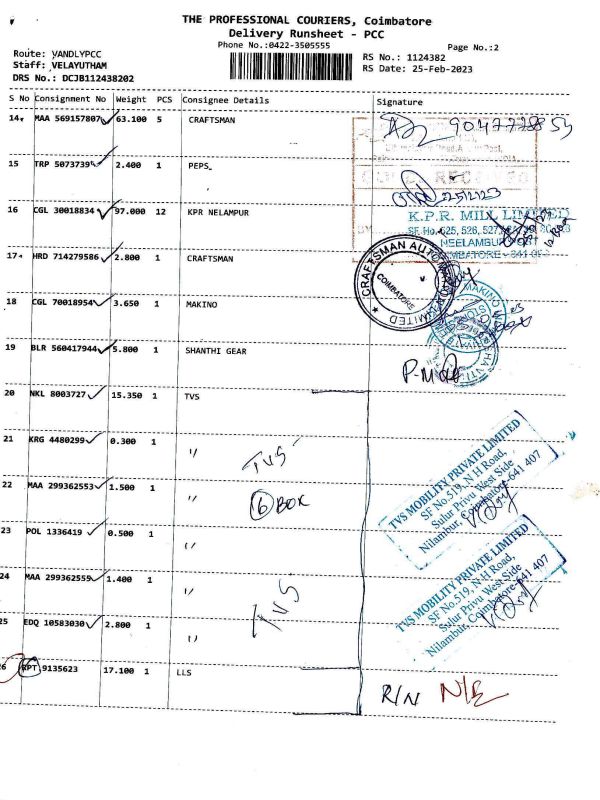 THE PROFESSIONAL COURIERS, Coimbatore
Delivery Runsheet - PCC
Phone No.:0422-3505555
Page No.:2
Route: VANDLYPCC
Staff: VELAYUTHAM
DRS No.: DCJB112438202
RS No.: 1124382
RS Date: 25-Feb-2023
S No Consignment No Weight PCS Consignee Details Signature
14 MAA 569157807 63.100 5 CRAFTSMAN
15 TRP 5073739 2.400 1 PEPS
16 CGL 30018834 97.000 12 KPR NELAMPUR
K.P.R. MILL LIMITED
17 HRD 714279586 2.800 1 CRAFTSMAN
CRAFTSMAN AUTOM
COIMBATORE
LIMITED
18 CGL 70018954 3.650 1 MAKINO
MAKINO
19 BLR 560417944 5.800 1 SHANTHI GEAR
20 NKL 8003727 15.350 1 TVS
21 KRG 4480299 0.300 1 "
TVS
22 MAA 299362553 1.500 1 "
6 BOX
TVS MOBILITY PRIVATE LIMITED
SF No.519, N H Road,
Sulur Privu West Side
Nilambur, Coimbatore-641 407
23 POL 1336419 0.500 1 "
24 MAA 299362559 1.400 1 "
TVS
TVS MOBILITY PRIVATE LIMITED
SF No.519, N H Road,
Sulur Privu West Side
Nilambur, Coimbatore-641 407
25 EDQ 10583030 2.800 1 "
26 RPT 9135623 17.100 1 LLS
R/N N/E